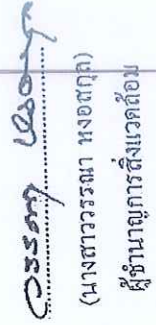 วรรณา หงอสกุล
(นางสาววรรณา หงอสกุล)
ผู้ชำนาญการสิ่งแวดล้อม